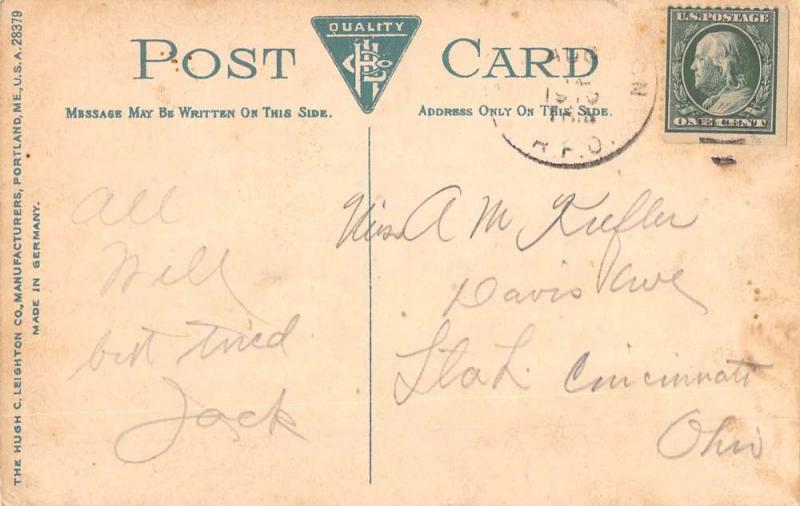 THE HUGH C. LEIGHTON CO., MANUFACTURERS, PORTLAND, ME., U.S.A. 28379
MADE IN GERMANY.
POST CARD
QUALITY
MESSAGE MAY BE WRITTEN ON THIS SIDE.
ADDRESS ONLY ON THIS SIDE.
AUG
R.P.O.
U.S. POSTAGE
ONE CENT
All
Well
but tired
Jack
Miss A M
Davis Ave
Sta L. Cincinnati
Ohio